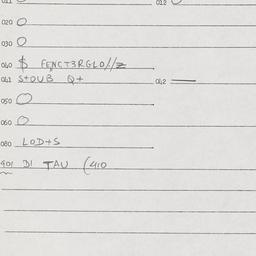 011 012
020
030
040 $ FENCT3RGLO//Z
041 STOUB Q+ 042
050
060
080 LOD+S
401 DI TAU (410